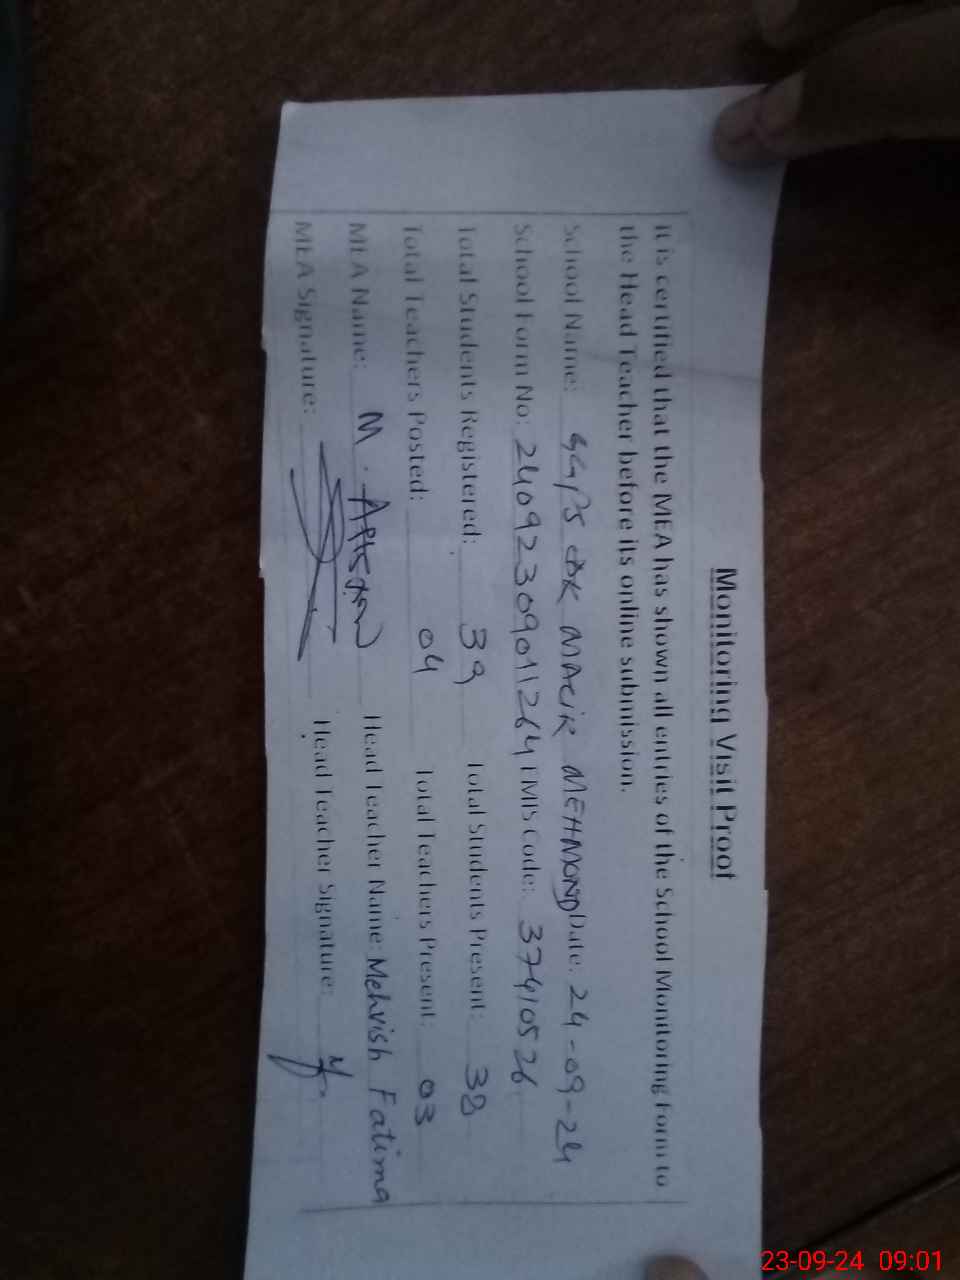 Monitoring Visit Proof
It is certified that the MEA has shown all entries of the School Monitoring Form to
the Head Teacher before its online submission.
School Name: GGPS DK MACIK MEHMOND Date: 24-09-24
School Form No: 24092309011264 EMIS Code: 37410526
Total Students Registered: 39 Total Students Present: 38
Total Teachers Posted: 04 Total Teachers Present: 03
MEA Name: M. AHSAN Head Teacher Name: Mehvish Fatima
MEA Signature: Head Teacher Signature:
23-09-24 09:01